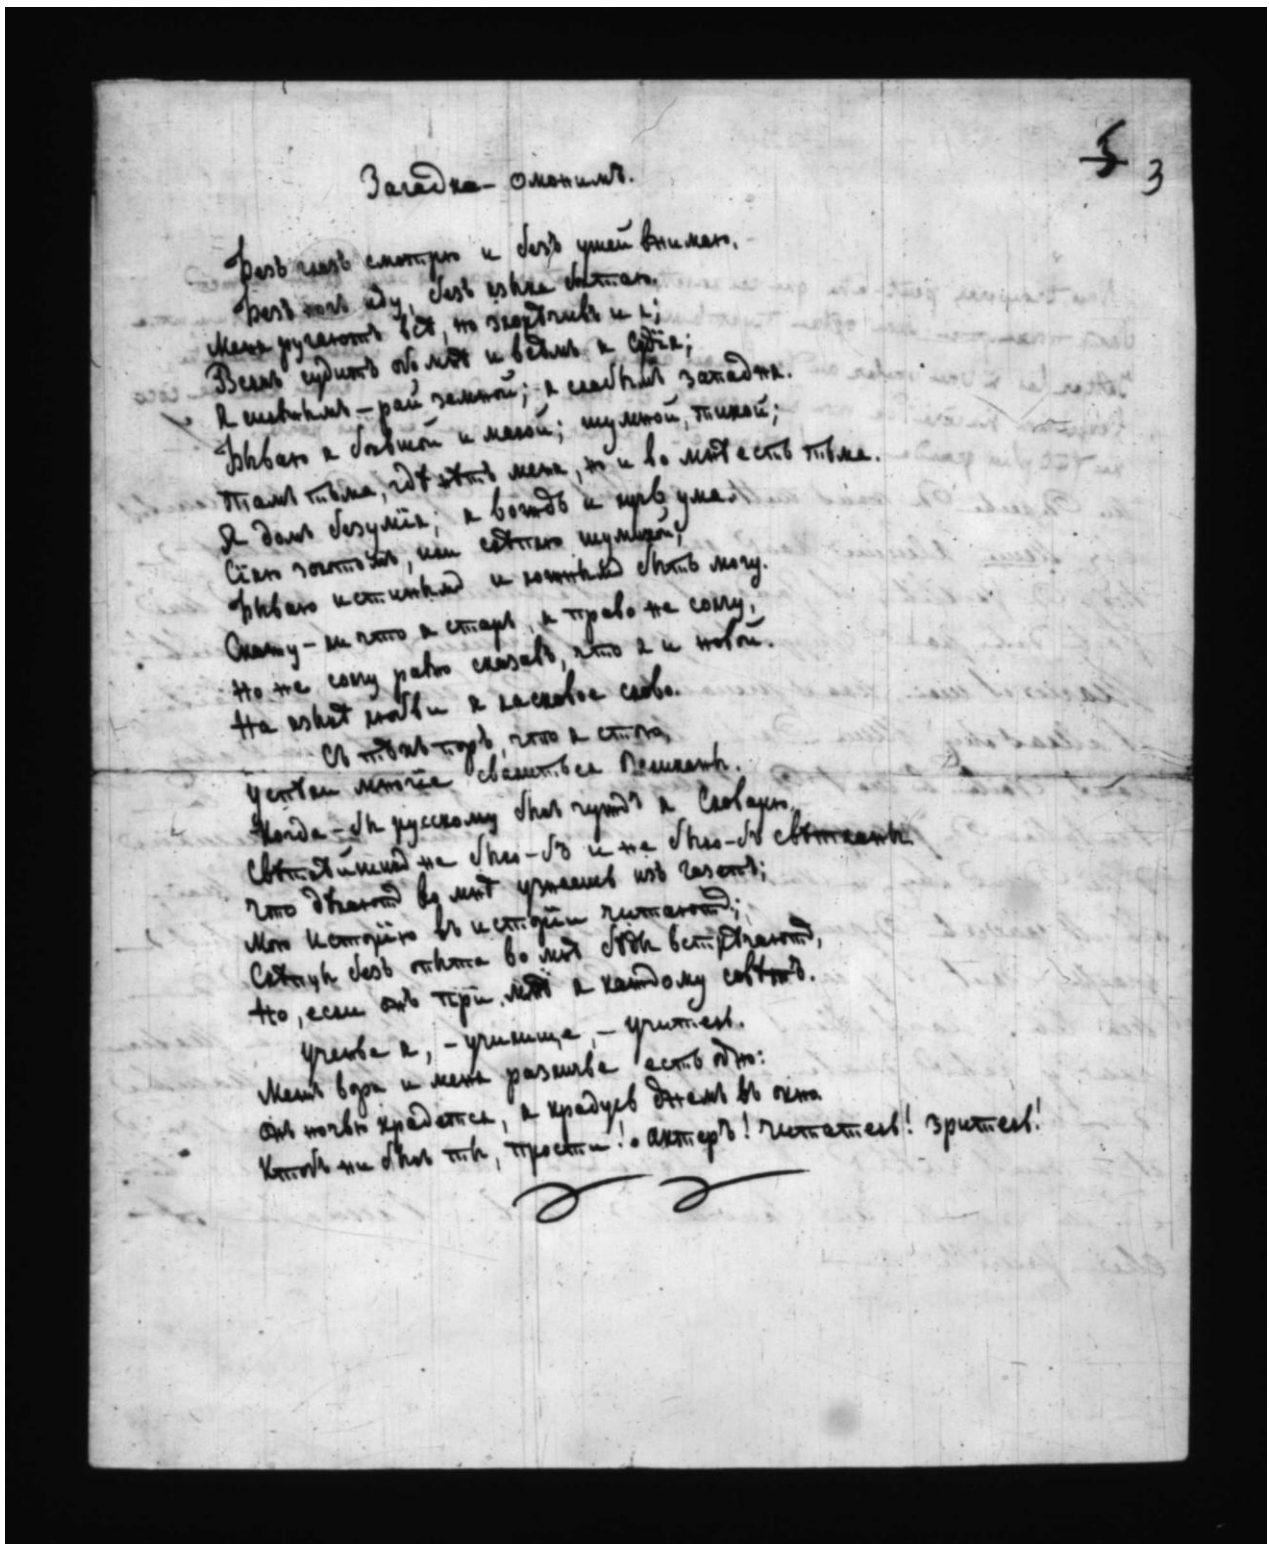 5 3
Загадка - омонимъ.
Безъ глазъ смотрю и безъ ушей внимаю.
Безъ ногъ иду, безъ языка болтаю.
Меня ругаютъ всѣ, но злорѣчивъ и я;
Всякъ судитъ обо мнѣ и всѣмъ я судiя;
Я сильнымъ - рай земной; я слабымъ западня.
Бываю я большой и малой; шумной, тихой;
Тамъ тьма, гдѣ нѣтъ меня, но и во мнѣ есть тьма.
Я домъ безумiя, я вождь и ума.
Сiяю золотомъ, или свѣтлю шумихой;
Бываю истиннымъ и ложнымъ быть могу.
Скажу-ли что я старъ, я право не солгу,
Но не солгу равно сказавъ, что я и новой.
На языкѣ любви я ласковое слово.
Съ тѣхъ поръ, что я стою,
Успѣли многiе свалиться Великаны.
Когда-бы русскому былъ чуждъ я Словарю,
Свѣтлѣйшихъ не было-бъ и не было-бъ свѣтланы
Что дѣлаютъ во мнѣ узнаешь изъ газетъ;
Мою исторiю въ исторiи читаютъ;
Свѣтъ безъ опыта во мнѣ бѣды встрѣчаютъ,
Но, если онъ при мнѣ я каждому совѣтъ.
Ученье я, - училище, - учитель.
Межъ вора и меня различье есть одно:
Онъ ночью крадется, я крадусь днемъ въ окно
Ктобъ ни былъ ты, прости! Актеръ! Читатель! Зритель!